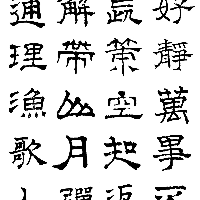 好靜萬事不
長策空知返
解帶山月彈
通理漁歌入